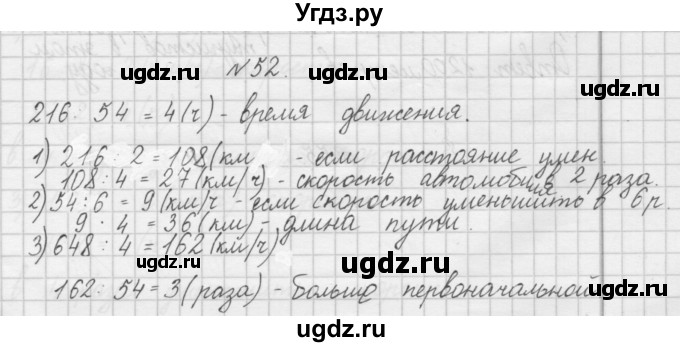 Угдз.ру
ugdz.ru ugdz.ru ugdz.ru
№52.
216 : 54 = 4(ч) - время движения.
ugdz.ru ugdz.ru
1) 216 : 2 = 108(км - если расстояние умен.
108 : 4 = 27(км/ч) - скорость автомобиля в 2 раза.
2) 54 : 6 = 9(км/ч - если скорость уменьшить в 6 р.
9 · 4 = 36(км) - длина пути.
3) 648 : 4 = 162(км/ч)
ugdz.ru ugdz.ru
162 : 54 = 3(раза) - больше первоначальной
ugdz.ru ugdz.ru
ugdz.ru